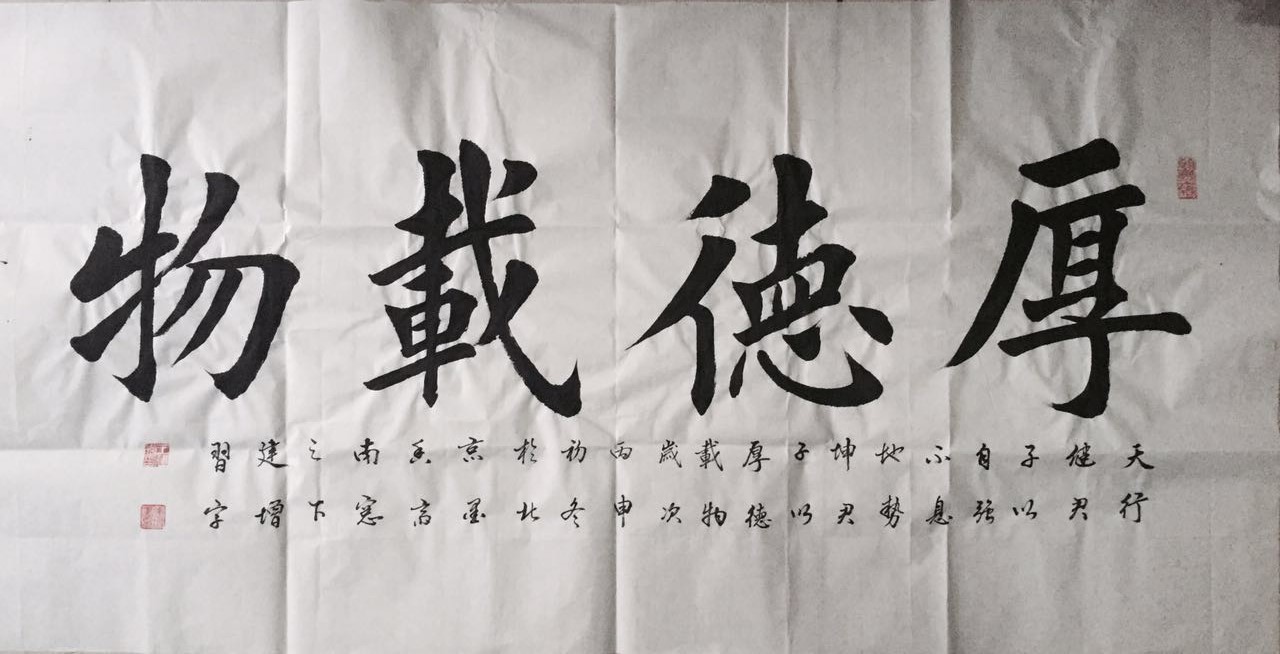 厚德載物
天行
健君
子以
自强
不息
地勢
坤君
子以
厚德
載物
歲次
丙申
初冬
於北
京墨
香
南窓
之下
建增
習字